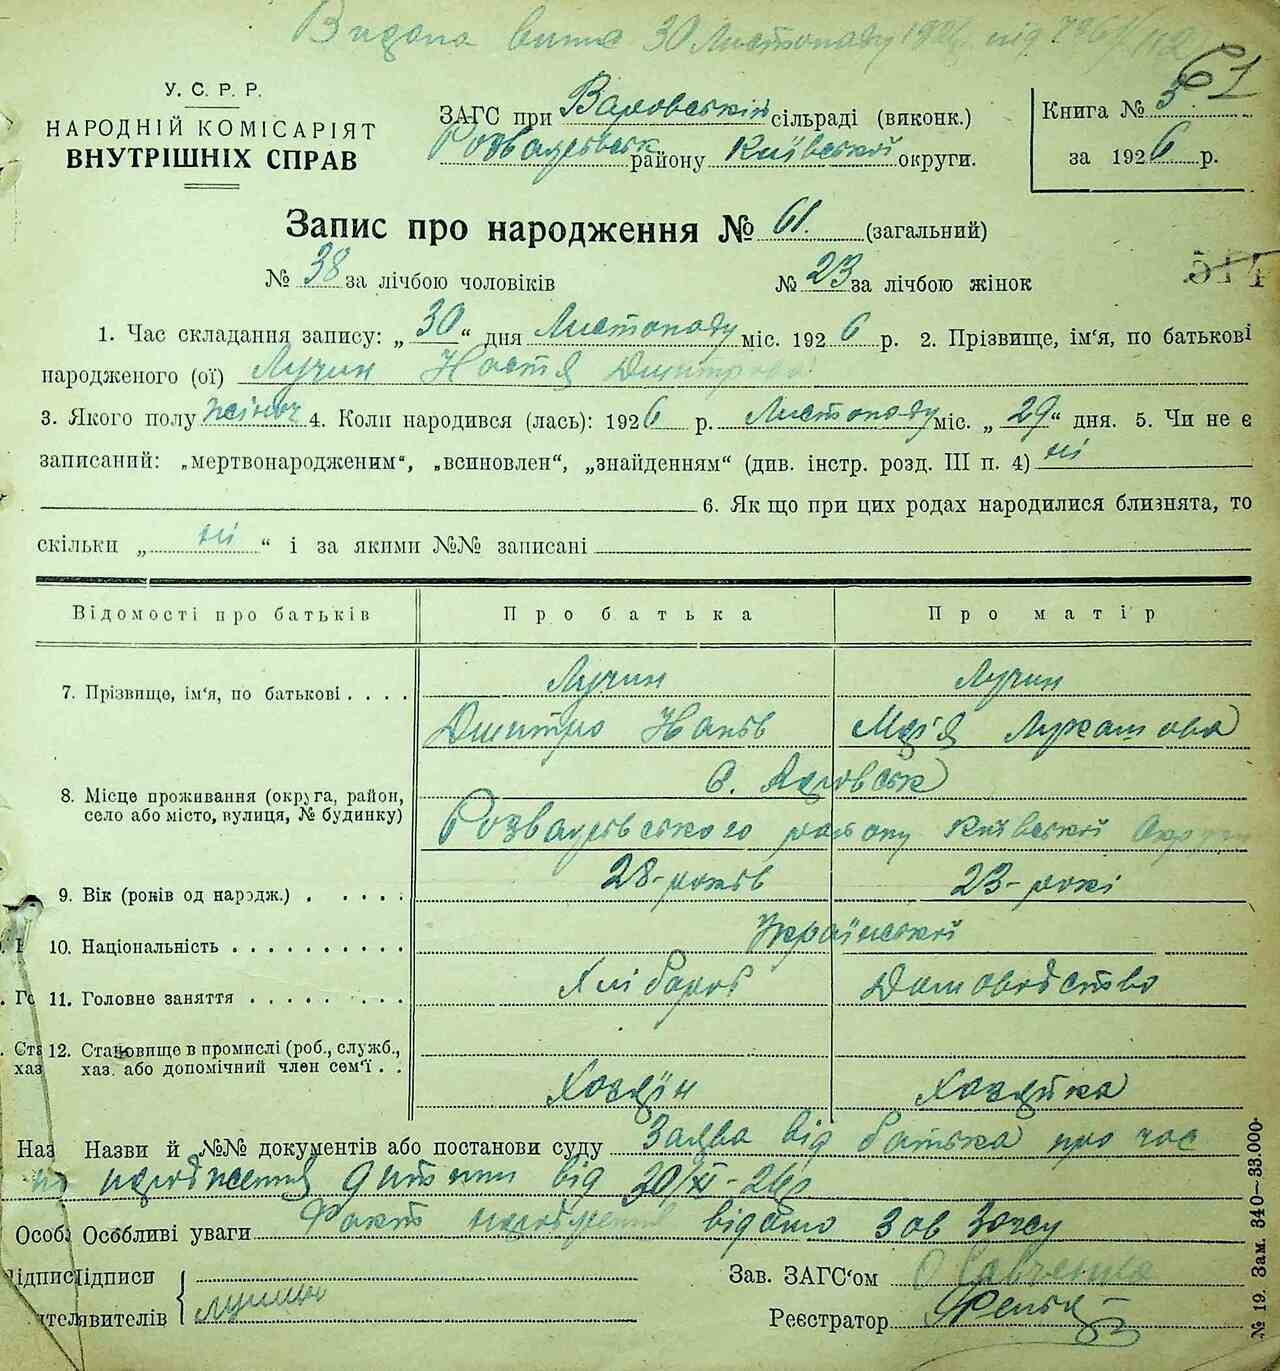 Видана випис 30 Листопаду 1926
61
У. С. Р. Р.
НАРОДНІЙ КОМІСАРІЯТ
ВНУТРІШНІХ СПРАВ
ЗАГС при сільраді (виконк.)
району Київської округи.
Книга № 3
за 1926 р.
Запис про народження № 61. (загальний)
№ 38 за лічбою чоловіків № 23 за лічбою жінок
514
1. Час складання запису: „ 30 “ дня Листопаду міс. 1926 р. 2. Прізвище, ім‘я, по батькові
народженого (ої) Лучин Настя Дмитрова
3. Якого полу жіноч 4. Коли народився (лась): 1926 р. Листопаду міс. „ 29 “ дня. 5. Чи не є
записаний: „мертвонародженим“, „всиновлен“, „знайденням“ (див. інстр. розд. III п. 4) ні
6. Як що при цих родах народилися близнята, то
скільки „ ні “ і за якими №№ записані
Відомості про батьків Про батька Про матір
7. Прізвище, ім‘я, по батькові . . . . Лучин Лучин
Дмитро Лукашова
8. Місце проживання (округа, район,
село або місто, вулиця, № будинку)
с.
Розваževського району Київської Округи
9. Вік (років од народж.) . . . . . 28-років 23-рокі
10. Національність . . . . . . . . . . Української
11. Головне заняття . . . . . . . . Хлібороб Домоводство
12. Становище в промислі (роб., служб.,
хаз. або допомічний член сем‘ї . .
Хозяїн Хозяйка
Назви й №№ документів або постанови суду Заява від батька про час
народження дитини від 30/XI-26р
Особливі уваги Факт народження відомо
Підписи
заявителів Лучин
Зав. ЗАГС‘ом О Савченко
Реєстратор
№ 19. Зам. 340—33.000